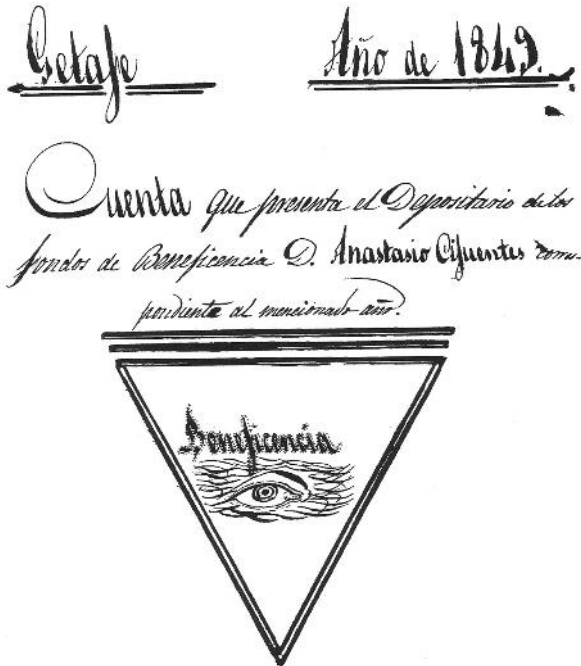 Getafe Año de 1849.
Cuenta que presenta el Depositario de los
fondos de Beneficencia D. Anastasio Cifuentes corres-
pondiente al mencionado año.
Beneficencia